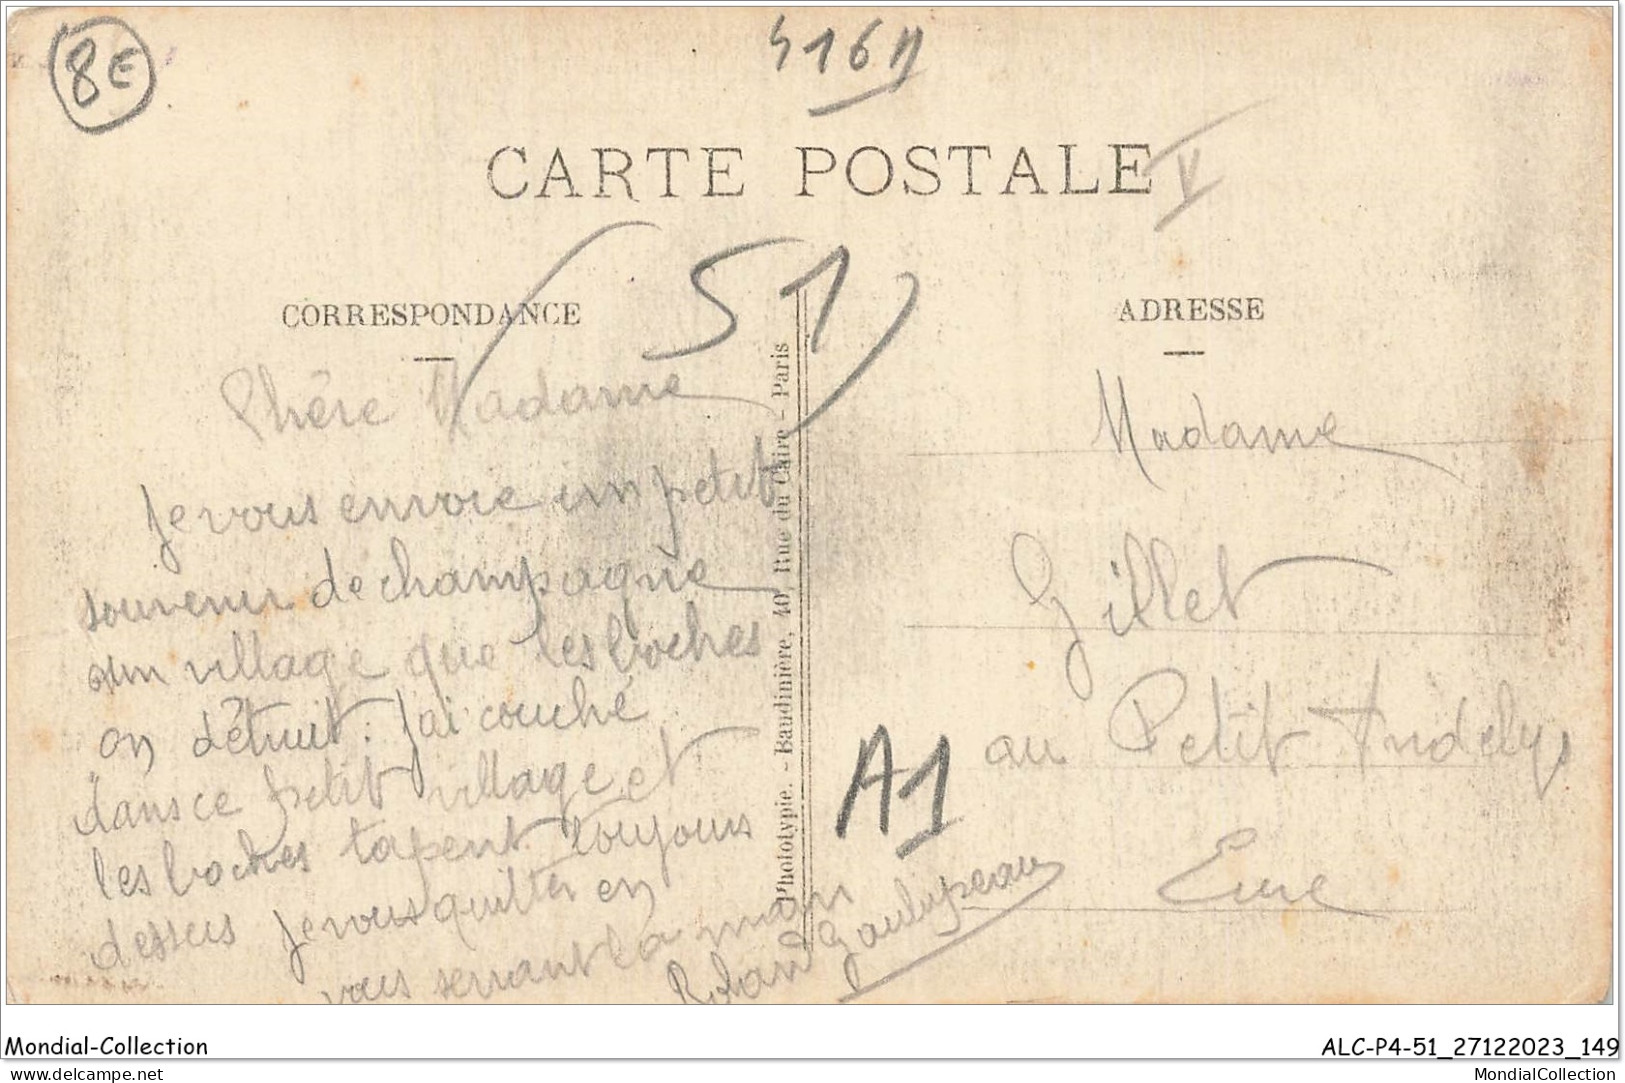 8€
516
CARTE POSTALE
V
51
CORRESPONDANCE
Chère Madame
Je vous envoie un petit
souvenir de champagne
un village que les boches
on détruit. J'ai couché
dans ce petit village et
les boches tapent toujours
dessus je vous quitter en
vous serrant la main
Roland
Phototypie. - Baudinière, 40, Rue du Caire - Paris
ADRESSE
Madame
Gillet
au Petit Andelys
Eure
A1
Mondial-Collection
ALC-P4-51_27122023_149
delcampe.net
MondialCollection